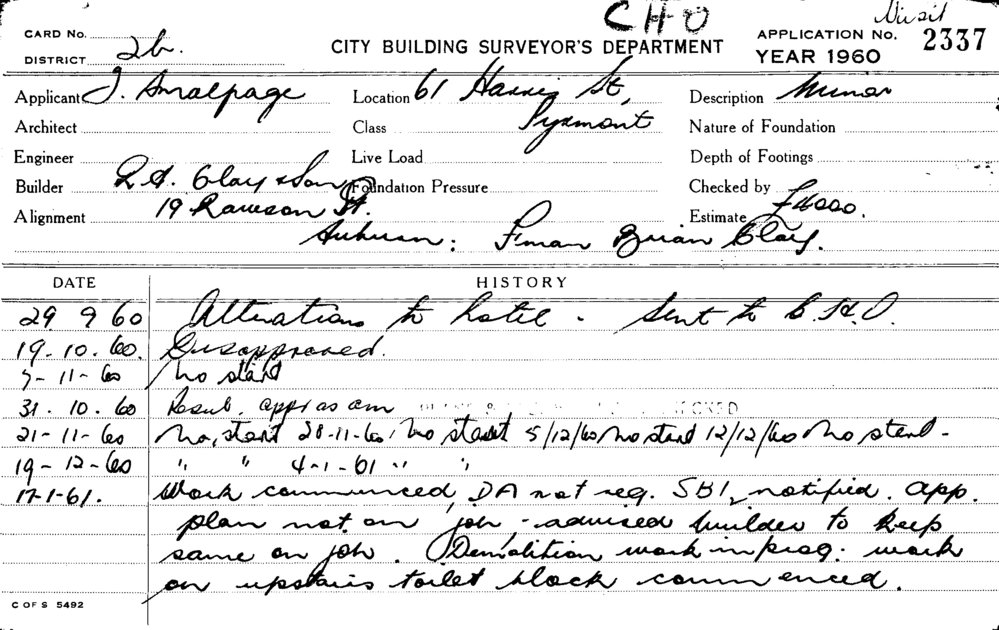 CHO
Visit
CARD No.
DISTRICT 2b.
CITY BUILDING SURVEYOR'S DEPARTMENT
APPLICATION No. 2337
YEAR 1960
Applicant J. Smalpage
Location 61 Harris St,
Pyrmont
Description Minor
Architect
Class
Nature of Foundation
Engineer
Live Load
Depth of Footings
Builder R.A. Clay & Son
Foundation Pressure
Checked by
Alignment 19 Rawson St.
Estimate £4000.
Auburn: F'man Brian Clay.
DATE HISTORY
29 9 60 Alterations to hotel. Sent to C.H.O.
19.10.60. Disapproved.
7-11-60 No start
31.10.60 Resub. app as am
21-11-60 No start 28-11-60 No start 5/12/60 No start 12/12/60 No start -
19-12-60 " " 4-1-61 " "
17-1-61. Work commenced, DA not req. SBI, notified. App.
plan not on job - advised builder to keep
same on job. Demolition work in prog. work
on upstairs toilet block commenced.
C OF S 5492